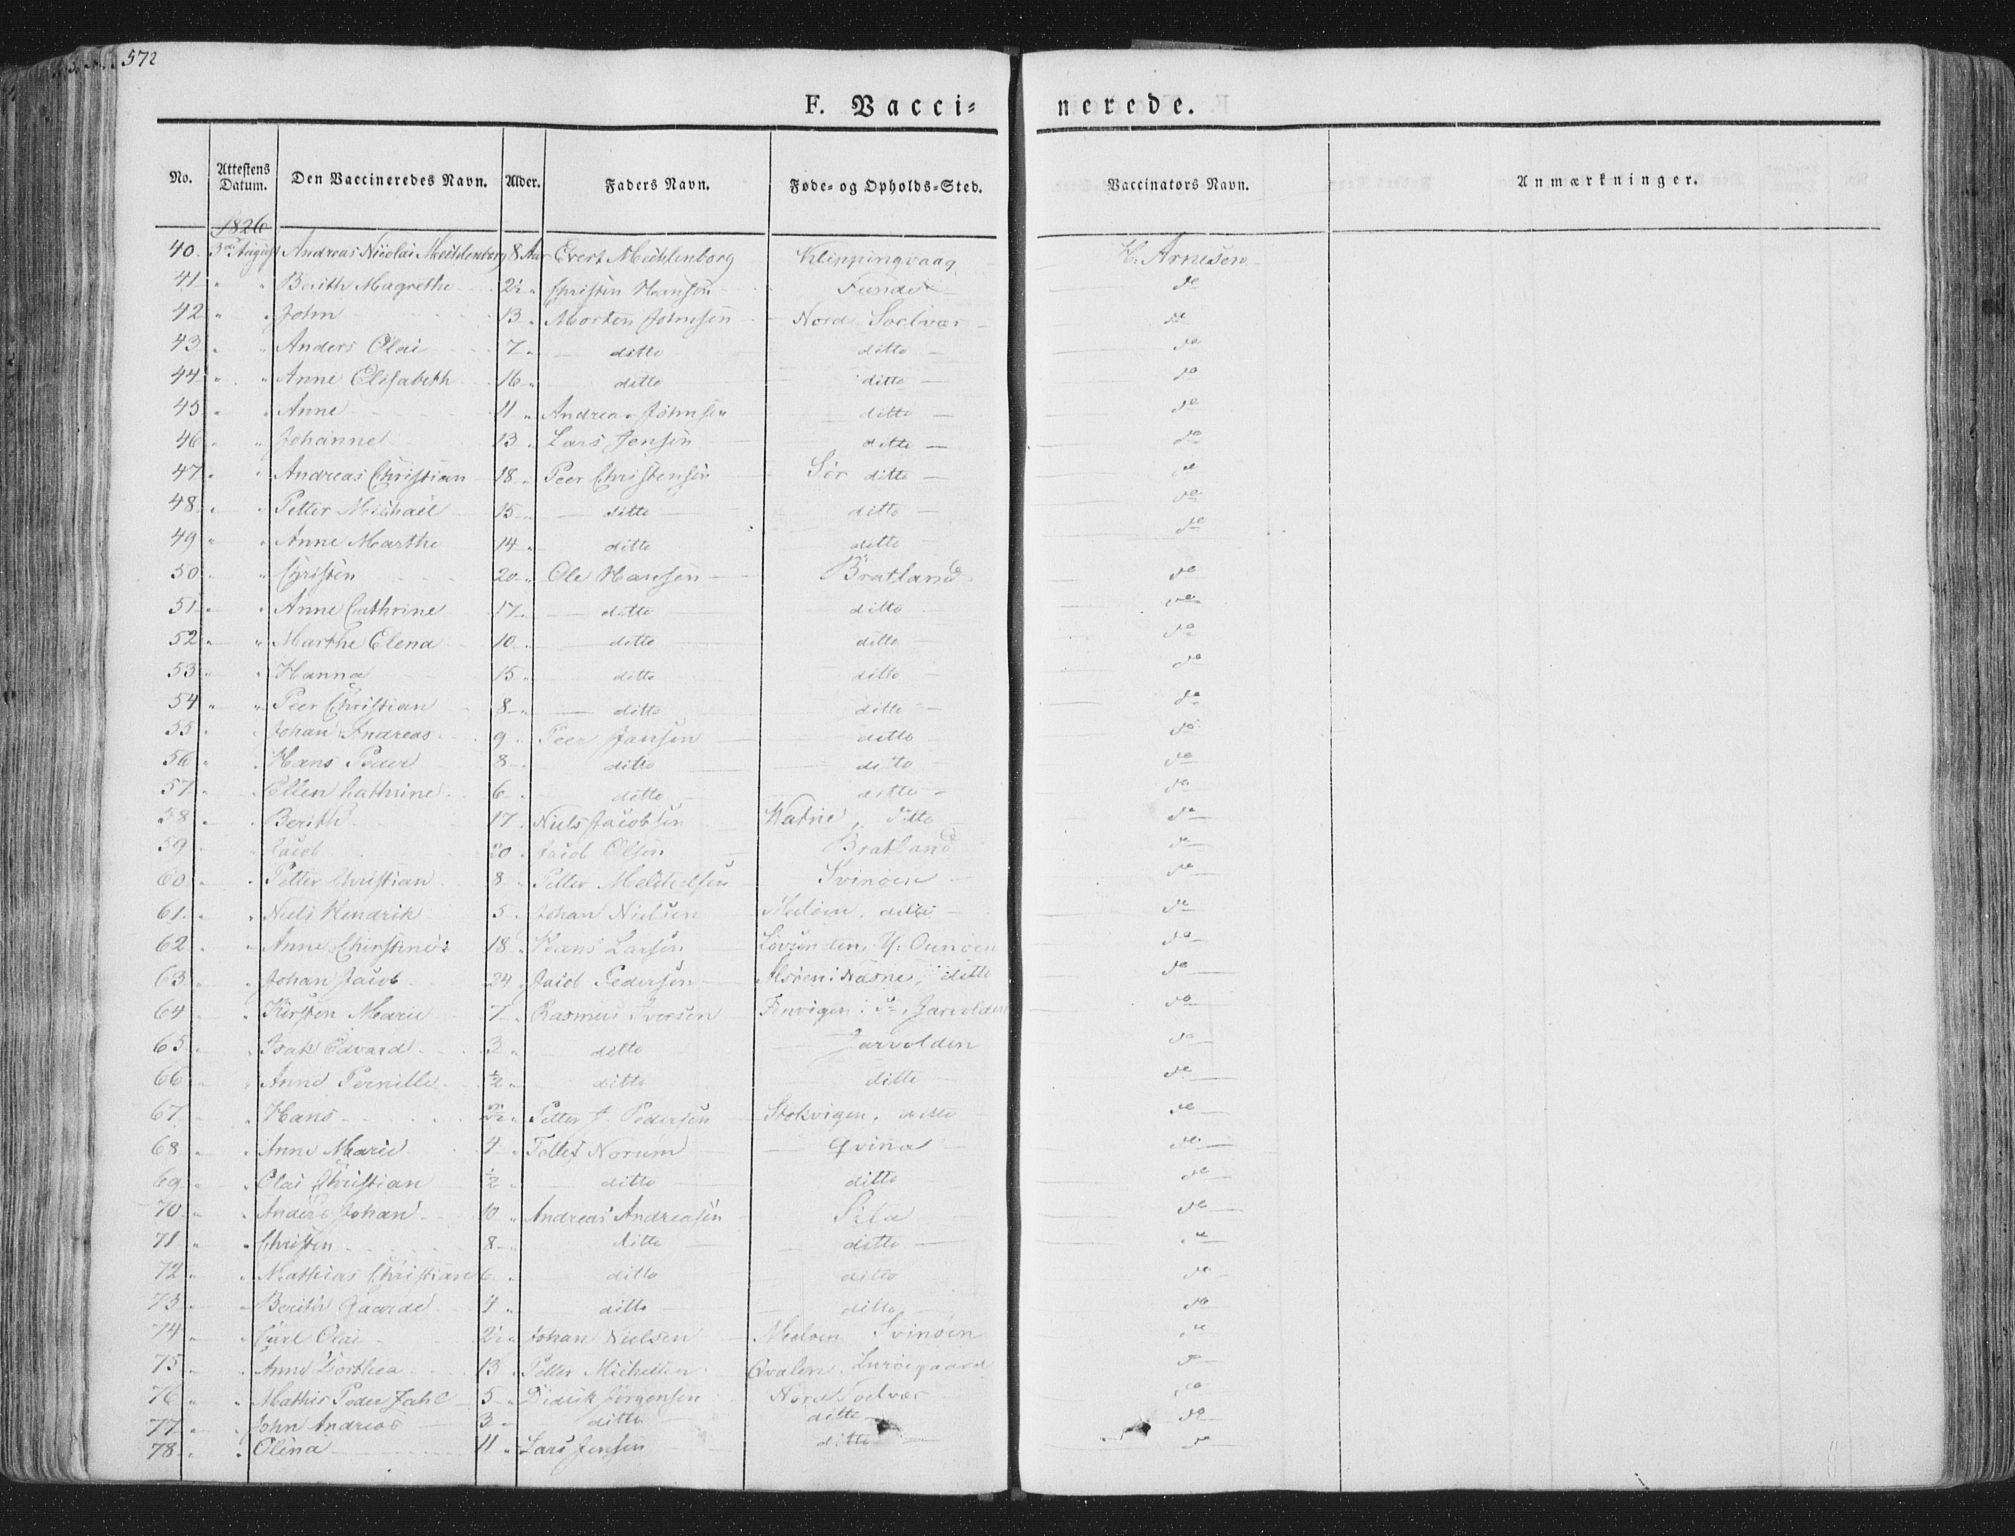 572
F. Vacci= nerede.
No. Attestens Datum. Den Vaccineredes Navn. Alder. Faders Navn. Føde- og Opholds-Sted. Vaccinators Navn. Anmærkninger.
1826
40 3die August Andreas Nicolai Mechlenborg 8 Aar Evert Mechlenborg Klippingvaag H. Arnesen
41 " " Berith Magrethe 2½ " Christen Hansen do
42 " " John 13 " Morten Johnsen Nord Soelvær do
43 " " Anders Olai 7 " ditto ditto do
44 " " Anne Elisabeth 16 " ditto ditto do
45 " " Anne 11 " Andreas Johnsen ditto do
46 " " Johanne 13 " Lars Jensen ditto do
47 " " Andreas Christian 18 " Peer Christensen Sør ditto do
48 " " Petter Michael 15 " ditto ditto do
49 " " Anne Marthe 14 " ditto ditto do
50 " " Christen 20 " Ole Hansen Bratland do
51 " " Anne Cathrine 17 " ditto ditto do
52 " " Marthe Elena 10 " ditto ditto do
53 " " Hanna 15 " ditto ditto do
54 " " Peer Christian 8 " ditto ditto do
55 " " Johan Andreas 9 " Peer Jansen ditto do
56 " " Hans Peder 8 " ditto ditto do
57 " " Ellen Cathrine 6 " ditto ditto do
58 " " Berith 17 " Niels Jacobsen ditto do
59 " " Jacob 20 " Jacob Olsen Bratland do
60 " " Petter Christian 8 " Petter Svinøen do
61 " " Niels Hendrik 5 " Johan Nielsen ditto do
62 " " Anne Christine 18 " Hans Larsen Lovunden do
63 " " Johan Jacob 24 " Jacob Pedersen ditto do
64 " " Kirsten Marie 7 " Rasmus Iversen Finvigen Jarvolden do
65 " " Isak Edvard 3 " ditto Jarvolden do
66 " " Anne Pernille ½ " ditto ditto do
67 " " Hans Petter Pedersen Stokvigen, ditto do
68 " " Anne Marie 4 " Norum Qvina do
69 " " Olai Christian ½ " ditto ditto do
70 " " Anders Johan 10 " Andreas Andreasen Sila do
71 " " Christen 8 " ditto ditto do
72 " " Mathias Christian 6 " ditto ditto do
73 " " Berith 4 " ditto ditto do
74 " " Carl Olai 2½ " Johan Nielsen Svinøen do
75 " " Anne Dorthea 13 " Petter Michelsen Qvalen, Lurøegaard do
76 " " Mathis Peder 5 " Didrik Jørgensen Nord Soelvær do
77 " " John Andreas 3 " ditto ditto do
78 " " Olina 11 " Lars Jensen ditto do